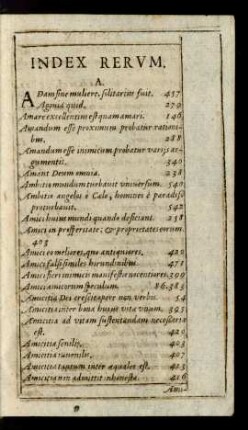 INDEX RERVM.
A.
ADam sine muliere, solitarius fuit. 457
Agonia quid. 279
Amare excellentius est quam amari. 146
Amandum esse proximum probatur rationi-
bus. 288
Amandum esse inimicum probatur varijs ar-
gumentis. 340
Amant Deum omnia. 238
Ambitio mundum turbauit vniuersum. 540
Ambitio angelos è Cælo, homines è paradiso
proturbauit. 542
Amici huius mundi quando deficiant. 238
Amici in prosperitate; & proprietates eorum.
403
Amici eo meliores, quo antiquiores. 420
Amici falsi similes hirundinibus. 471
Amici fieri inimici manifesta nocentiores. 399
Amicus amicorum speculum. 86.383
Amicitia Dei crescit opere non verbo. 54
Amicitia inter bona huius vitæ vnum. 395
Amicitia ad vitam sustentandam necessaria
est. 420
Amicitia senilis. 403
Amicitia iuuenilis. 407
Amicitia tantum inter æquales est. 423
Amicitia non admittit inhonesta. 426
Ami-